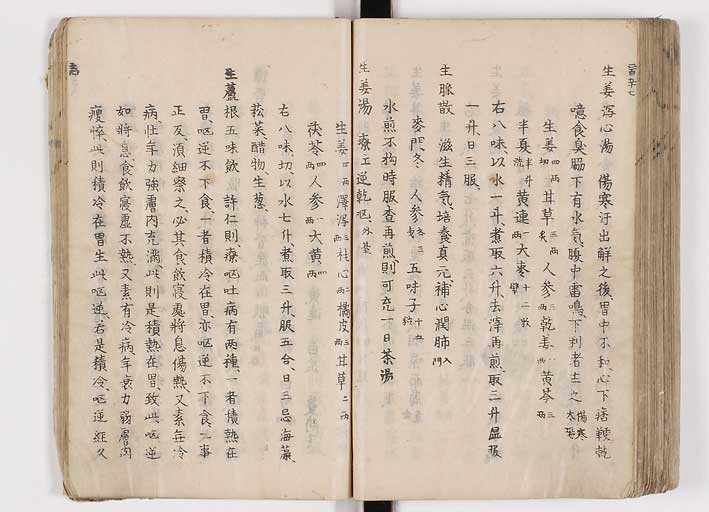 生姜瀉心湯 傷寒汗出解之後、胃中不和、心下痞鞕、乾
噫食臭、脇下有水気、腹中雷鳴、下利者主之 傷寒太陽
生姜四両切 甘草三両炙 人参三両 乾姜一両 黄芩三両
半夏半升洗 黄連一両 大棗十二枚擘
右八味、以水一斗、煮取六升、去滓再煎、取三升、温服
一升、日三服、
生脈散 滋生精気、培養真元、補心潤肺
麦門冬 人参各三 五味子
水煎不拘時服、査再煎、則可充一日茶湯
生姜湯 療 逆乾呕 外臺
生姜四両 澤瀉三両 桂心二両 橘皮三両 甘草二両
茯苓四両 人参一両 大黄四両
右八味、切、以水七升、煮取三升、服五合、日三、忌海藻、
菘菜醋物、生葱、
生蘆根五味飲 許仁則、療呕吐病有両種、一者積熱在
胃、呕逆不下食、一者積冷在胃、亦呕逆不下食、二事
正反、須細察之、必其食飲寝處、将息傷熱、又素無冷
病、年壮力強、膚肉充満、此則是積熱在胃、致此呕逆、
如将息食飲寝處不熱、又素有冷病、年衰力弱、膚肉
瘦悴、此則積冷在胃、生此呕逆、若是積冷、呕逆経久